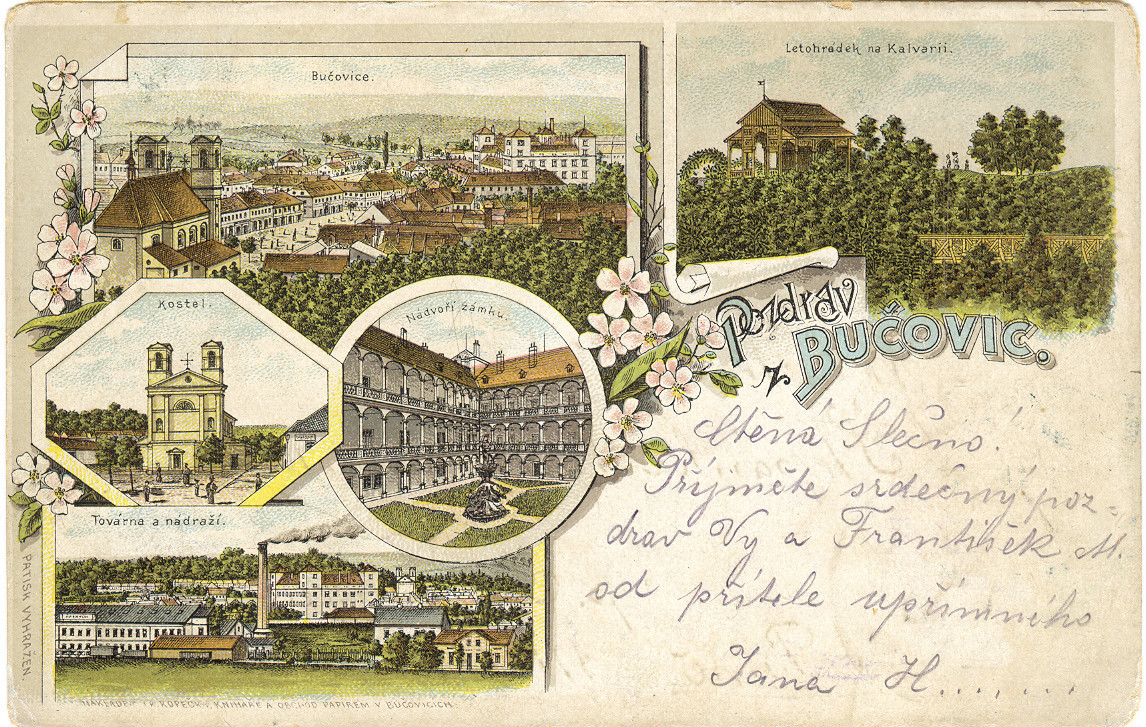 Bučovice.
Letohrádek na Kalvarii.
Kostel.
Nádvoří zámku.
Továrna a nádraží.
Pozdrav
z BUČOVIC.
Ctěná Slečno!
Přijměte srdečný poz-
drav Vy a Františék M.
od přítele upřímného
Jana H........
PATISK VYHRAŽEN.
KOPECKÝ, KNIHAŘE A OBCHOD PAPÍREM V BUČOVICÍCH.